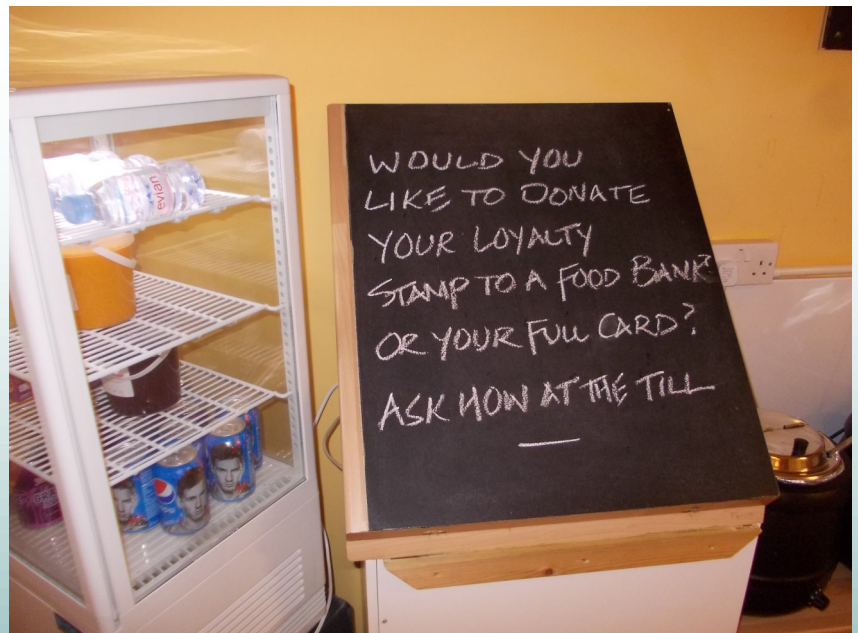 evian
WOULD YOU
LIKE TO DONATE
YOUR LOYALTY
STAMP TO A FOOD BANK?
OR YOUR FULL CARD?
ASK HOW AT THE TILL
pepsi